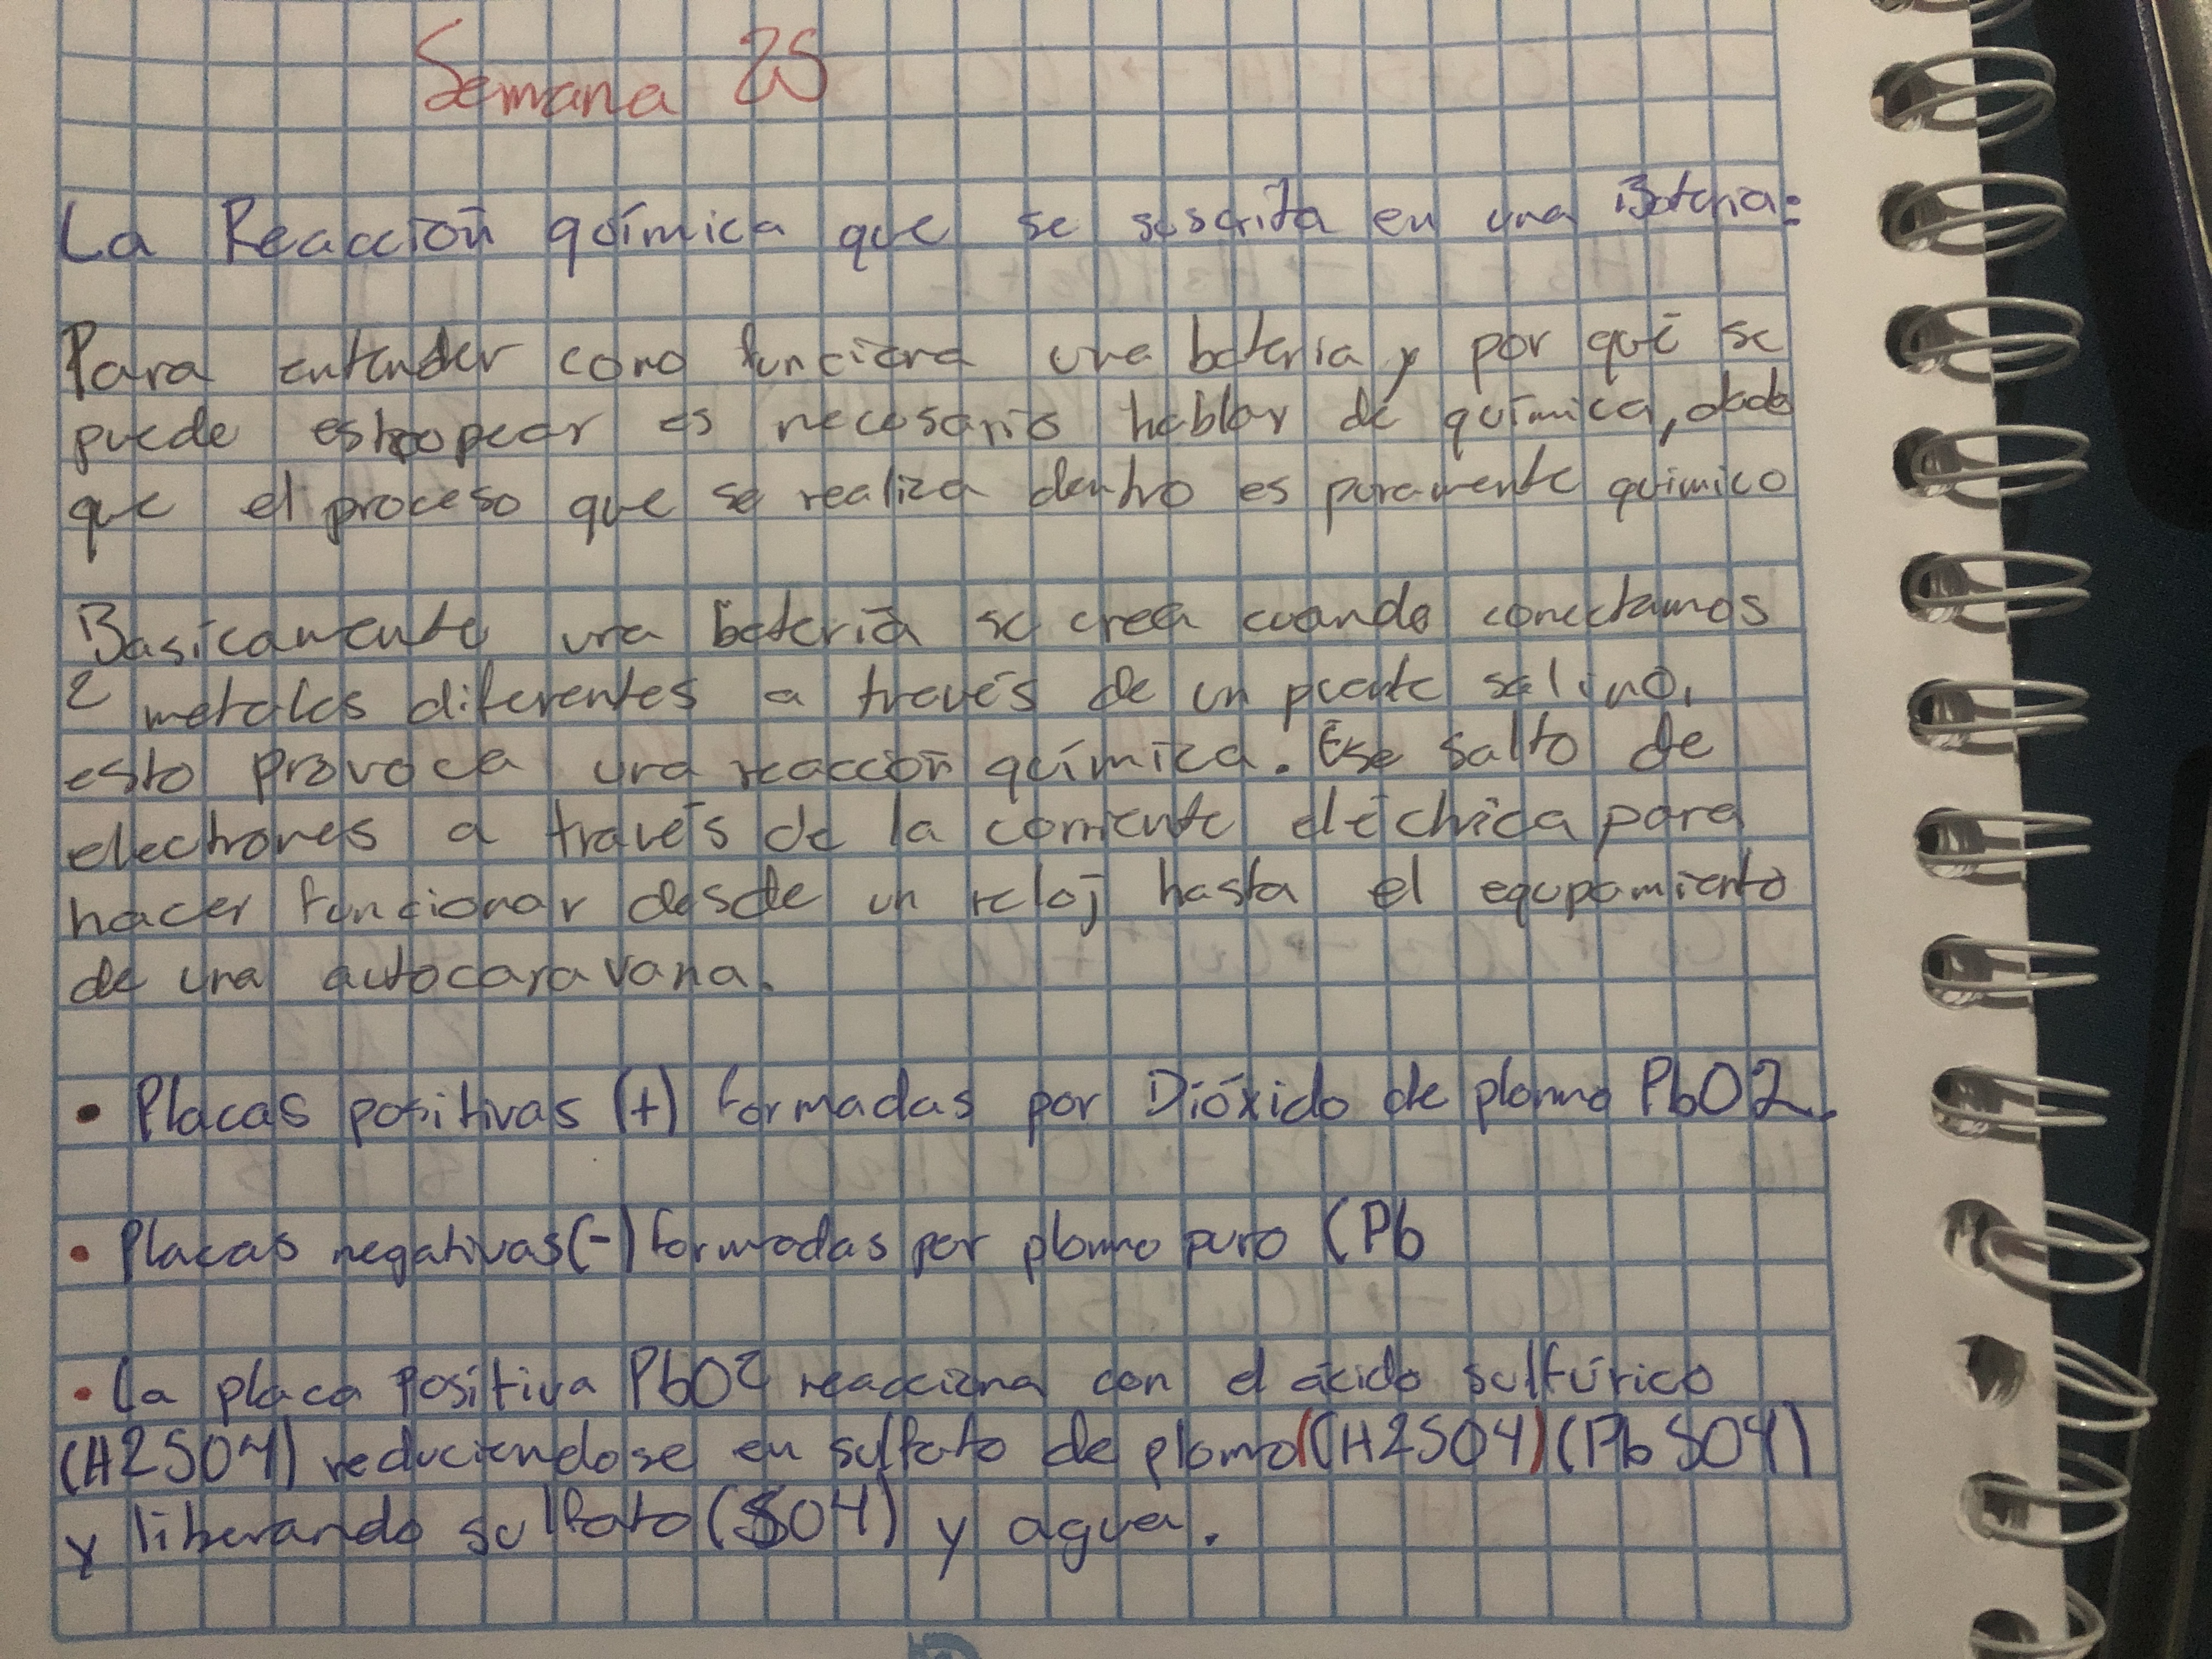 Semana 25
La Reacción química que se suscrita en una Bateria:
Para entender como funciona una bateria y por qué se
puede estropear es necesario hablar de química, dado
que el proceso que se realiza dentro es puramente quimico
Basicamente una batería se crea cuando conectamos
2 metales diferentes a través de un puente salino,
esto provoca una reacción química. Ese salto de
electrones a través de la corriente eléctrica para
hacer funcionar desde un reloj hasta el equpamiento
de una autocaravana.
• Placas positivas (+) formadas por Dióxido de plomo PbO2.
• Placas negativas (-) formadas por plomo puro (Pb
• La placa positiva PbO2 reacciona con el ácido sulfúrico
(H2SO4) reduciendose en sulfato de plomo ((H2SO4) (PbSO4)
y liberando sulfato (SO4) y agua.